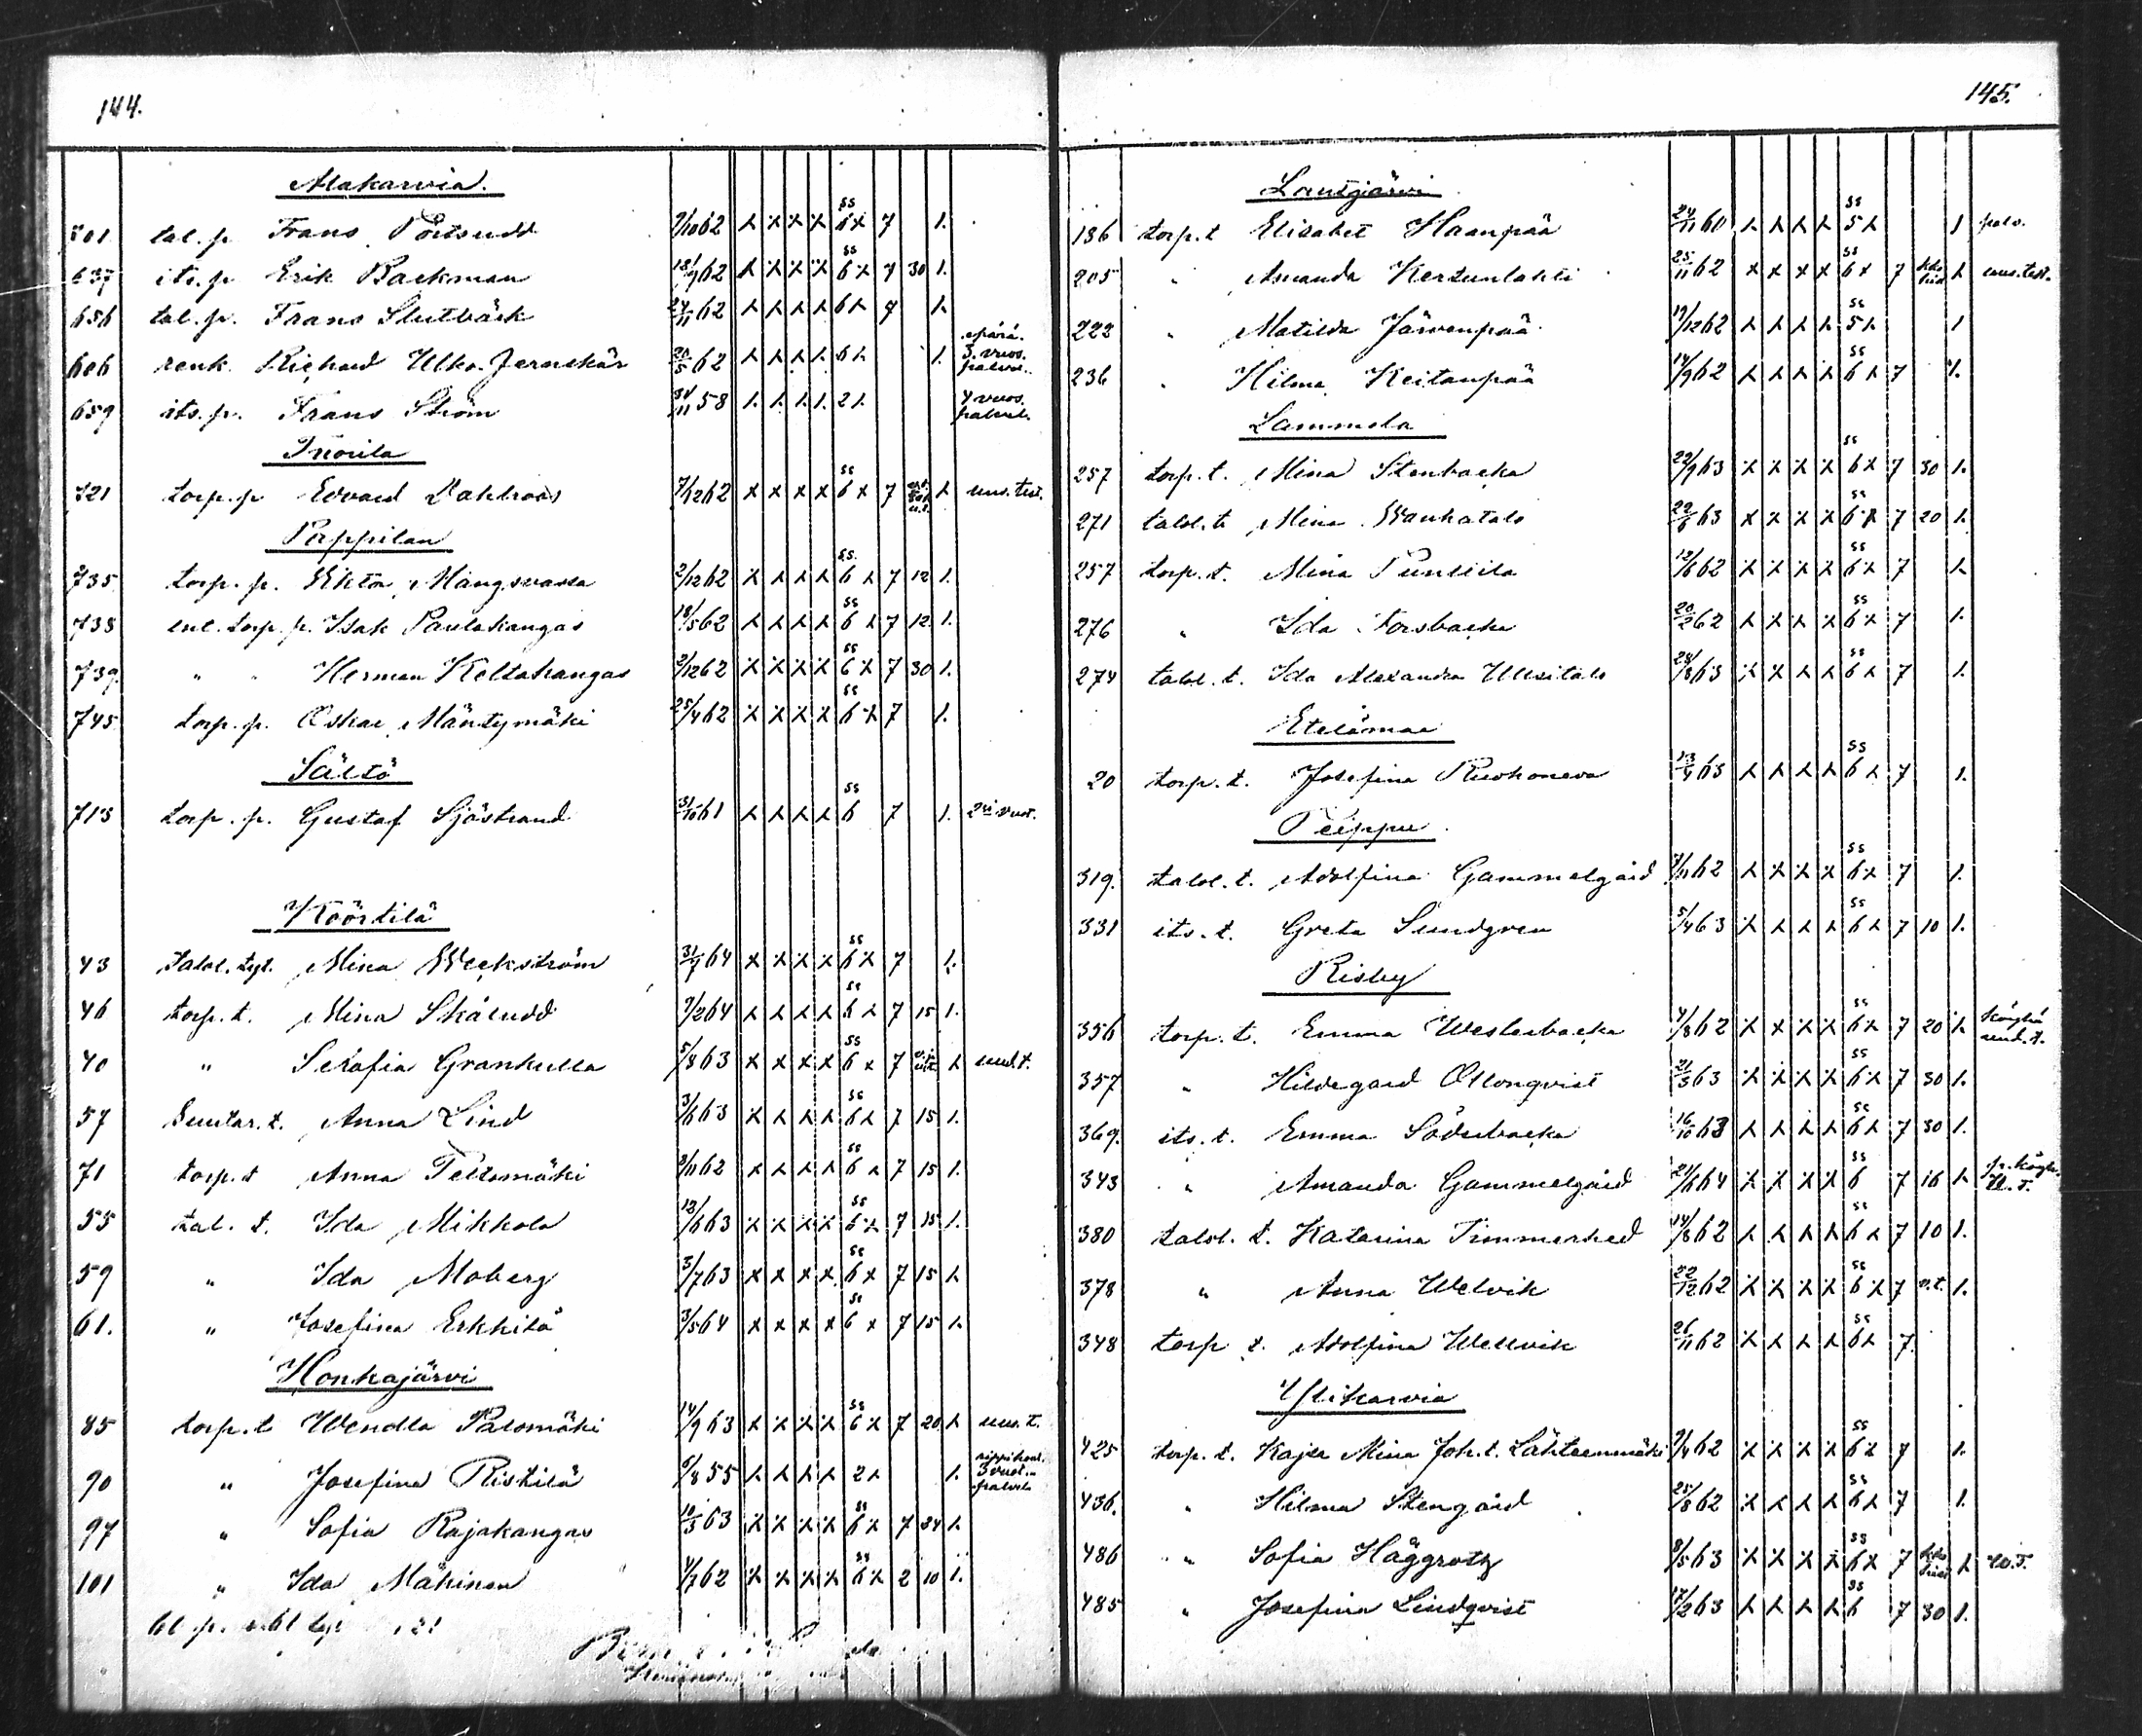 144.
Alakarvia.
701 tal. p. Frans Pörtsudd 7/10 62 x x x x ss 6 x 7 1.
637 its. p Erik Backman 18/9 62 x x x x ss 6 x 7 30 1.
656 tal. p. Frans Slutbäck 24/11 62 x x x x 6 x 7 1.
606 renk. Richard Ulko-Jernskär 20/5 62 x x x x 6 x 1. 3. vuos.
659 its. p. Frans Ström 11 58 1. 1. 1. 1. 2 1. 4 vuos.
Tuorila
721 torp. p Edvard Dahlroos 7/12 62 x x x x ss 6 x 7 x uus. test.
Pappilan
735 torp. p. Viktor Mangsvassa 2/12 62 x x x x ss 6 x 7 12 1.
738 ent. torp. p. Isak Paulakangas 18/5 62 x x x x ss 6 x 7 12 1.
739 " " Herman Keltakangas 2/12 62 x x x x ss 6 x 7 30 1.
745 torp. p. Oskar Mäntymäki 25/4 62 x x x x ss 6 x 7 1.
Sälttö
713 torp. p. Gustaf Sjöstrand 31/10 61 x x x x ss 6 7 1.
Köörtilä
43 talol. tyt. Mina Weckström 31/7 64 x x x x ss 6 x 7 1.
46 torp. t. Mina Skäludd 7/2 64 x x x x ss 6 x 7 15 1.
40 " Serafia Grankulla 5/8 63 x x x x ss 6 x 7 x uud. t.
57 Suutar. t. Anna Lind 3/6 63 x x x x ss 6 x 7 15 1.
71 torp. t Anna Peltomäki 2/11 62 x x x x ss 6 x 7 15 1.
55 tal. t. Ida Mikkola 12/6 63 x x x x ss 6 x 7 15 1.
59 " Ida Moberg 3/7 63 x x x x ss 6 x 7 15 x
61. " Josefina Erkkilä 3/5 64 x x x x ss 6 x 7 15 1.
Honkajärvi
85 torp. t Wendla Palomäki 14/9 63 x x x x ss 6 x 7 20 x uus. t.
90 " Josefina Ristilä 9/8 55 x x x x 2 x 1.
97 " Sofia Rajakangas 12/3 63 x x x x ss 6 x 7 24 1.
101 " Ida Mäkinen 4/7 62 x x x x ss 6 x 2 10 1.
61 p. 61 tyt
145.
Lautjärvi
136 torp. t Elisabet Haanpää 24/11 60 x x x x ss 5 x 1 palv.
205 " Amanda Kerttunlahti 25/11 62 x x x x ss 6 x 7 x uus. test.
222 " Matilda Järvenpää 17/12 62 x x x x ss 5 x 1
236 " Hilma Keitaupää 14/9 62 x x x x ss 6 x 7 1.
Lammela
257 torp. t. Mina Stenbacka 22/9 63 x x x x ss 6 x 7 30 1.
271 talol. t. Mina Wanhatalo 22/6 63 x x x x ss 6 x 7 20 1.
257 torp. t. Mina Puntiila 12/6 62 x x x x ss 6 x 7 x
276 " Ida Forsbacka 20/2 62 x x x x ss 6 x 7 1.
274 talol. t. Ida Alexandra Uusitalo 28/8 63 x x x x ss 6 x 7 1.
Etelämaa
20 torp. t. Josefina Ruohoneva 13/4 63 x x x x ss 6 x 7 1.
Peippu
319. talol. t. Adolfina Gammelgård 7/11 62 x x x x ss 6 x 7 1.
331 its. t. Greta Sundgren 5/4 63 x x x x ss 6 x 7 10 1.
Risby
356 torp. t. Emma Westerbacka 4/8 62 x x x x ss 6 x 7 20 x uud. t.
357 " Hildegard Ollonqvist 21/3 63 x x x x ss 6 x 7 30 1.
369. its. t. Emma Söderbacka 16/10 63 x x x x ss 6 x 7 30 1.
343 " Amanda Gammelgård 21/6 64 x x x x ss 6 7 16 x
380 talol. t. Katarina Timmerhed 14/8 62 x x x x ss 6 x 7 10 1.
378 " Anna Welvik 22/12 62 x x x x ss 6 x 7 v.t. 1.
348 torp t. Adolfina Wellvik 26/11 62 x x x x ss 6 x 7.
Ylikarvia
425 torp. t. Kajsa Mina Joh. t. Lähteenmäki 9/4 62 x x x x ss 6 x 7 1.
436. " Hilma Stengård 25/8 62 x x x x ss 6 x 7 1.
486 " Sofia Häggroth 8/5 63 x x x x ss 6 x 7 x
485 " Josefina Lindqvist 17/2 63 x x x x ss 6 7 30 1.